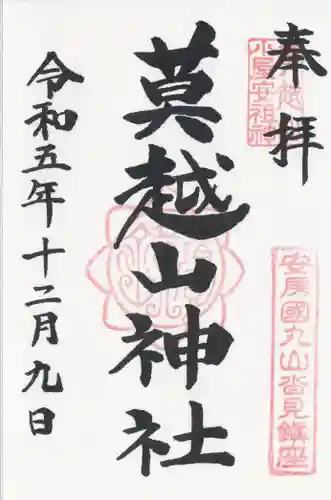 奉拝
安房國丸山沓見鎮座
莫越山神社
令和五年十二月九日